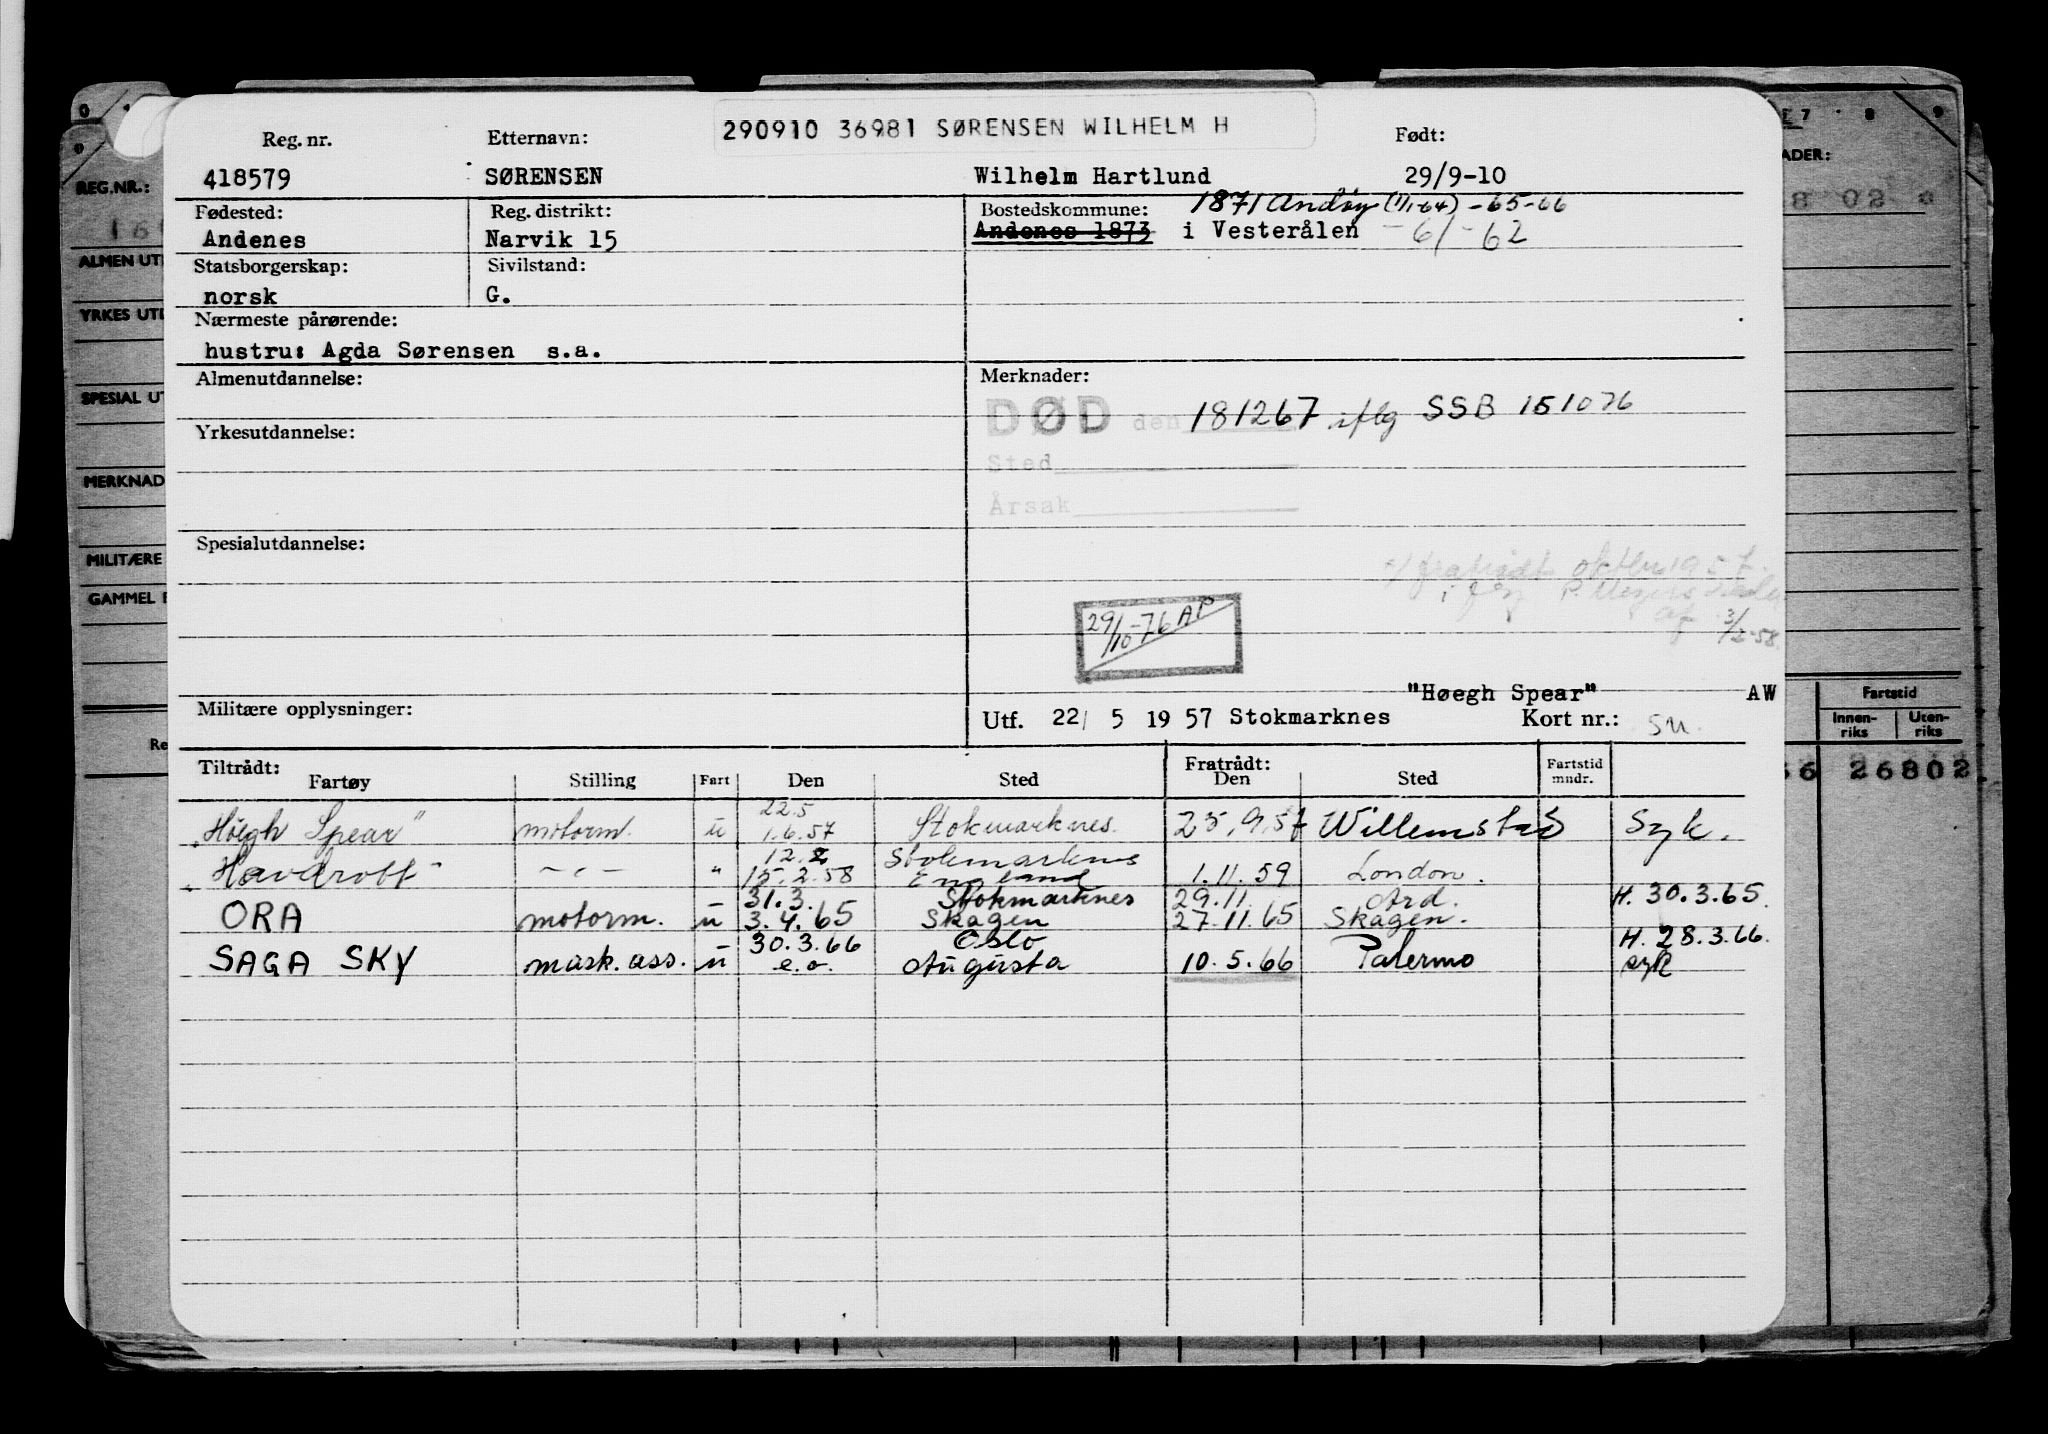 290910 36981 SØRENSEN WILHELM H
Reg. nr. Etternavn: Født:
418579 SØRENSEN Wilhelm Hartlund 29/9-10
Fødested: Reg. distrikt: Bostedskommune: 1871 Andøy (1/1-64) -65-66
Andenes Narvik 15 Andenes 1873 i Vesterålen -61-62
Statsborgerskap: Sivilstand:
norsk G.
Nærmeste pårørende:
hustru: Agda Sørensen s.a.
Almenutdannelse: Merknader:
DØD den 181267 iflg SSB 151076
Yrkesutdannelse:
Sted
Årsak
Spesialutdannelse:
fratrådt oktbr 1957.
i flg
af 3/2-58.
29/10-76 AP
"Høegh Spear" AW
Militære opplysninger: Utf. 22/ 5 1957 Stokmarknes Kort nr.:
Tiltrådt: Fratrådt:
Fartøy Stilling Fart Den Sted Den Sted Fartstid mndr.
22.5
"Høegh Spear" motorm. u 1.6.57 Stokmarknes. 25.9.57 Willemstad Syk.
12.2 Stokmarknes
"Havdrott" -"- " 15.2.58 England 1.11.59 London.
31.3. Stokmarknes 29.11. Ard. H. 30.3.65.
ORA motorm. u 3.4.65 Skagen 27.11.65 Skagen.
30.3.66 Oslo H. 28.3.66.
SAGA SKY mask. ass. u e.o. Augusta 10.5.66 Palermo syk
REG.NR.:
ALMEN UT
YRKES UTD
SPESIAL UT
MERKNAD
MILITÆRE
GAMMEL
Re
7 8 9
ADER:
8 02
Fartstid
Innen-riks Uten-riks
26802